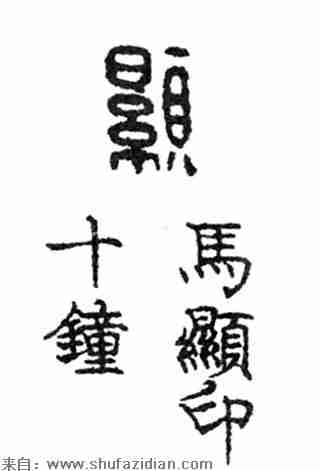 顯
馬顯印
十鐘
来自:www.shufazidian.com